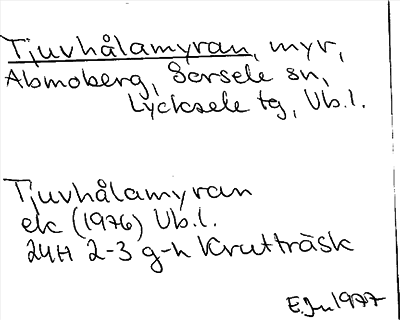 Tjuvhålamyran, myr,
Abmoberg, Sorsele sn,
Lycksele tg, Vb.l.
Tjuvhålamyran
ek (1976) Vb.l.
24H 2-3 g-h Krutträsk
E.Ju 1977